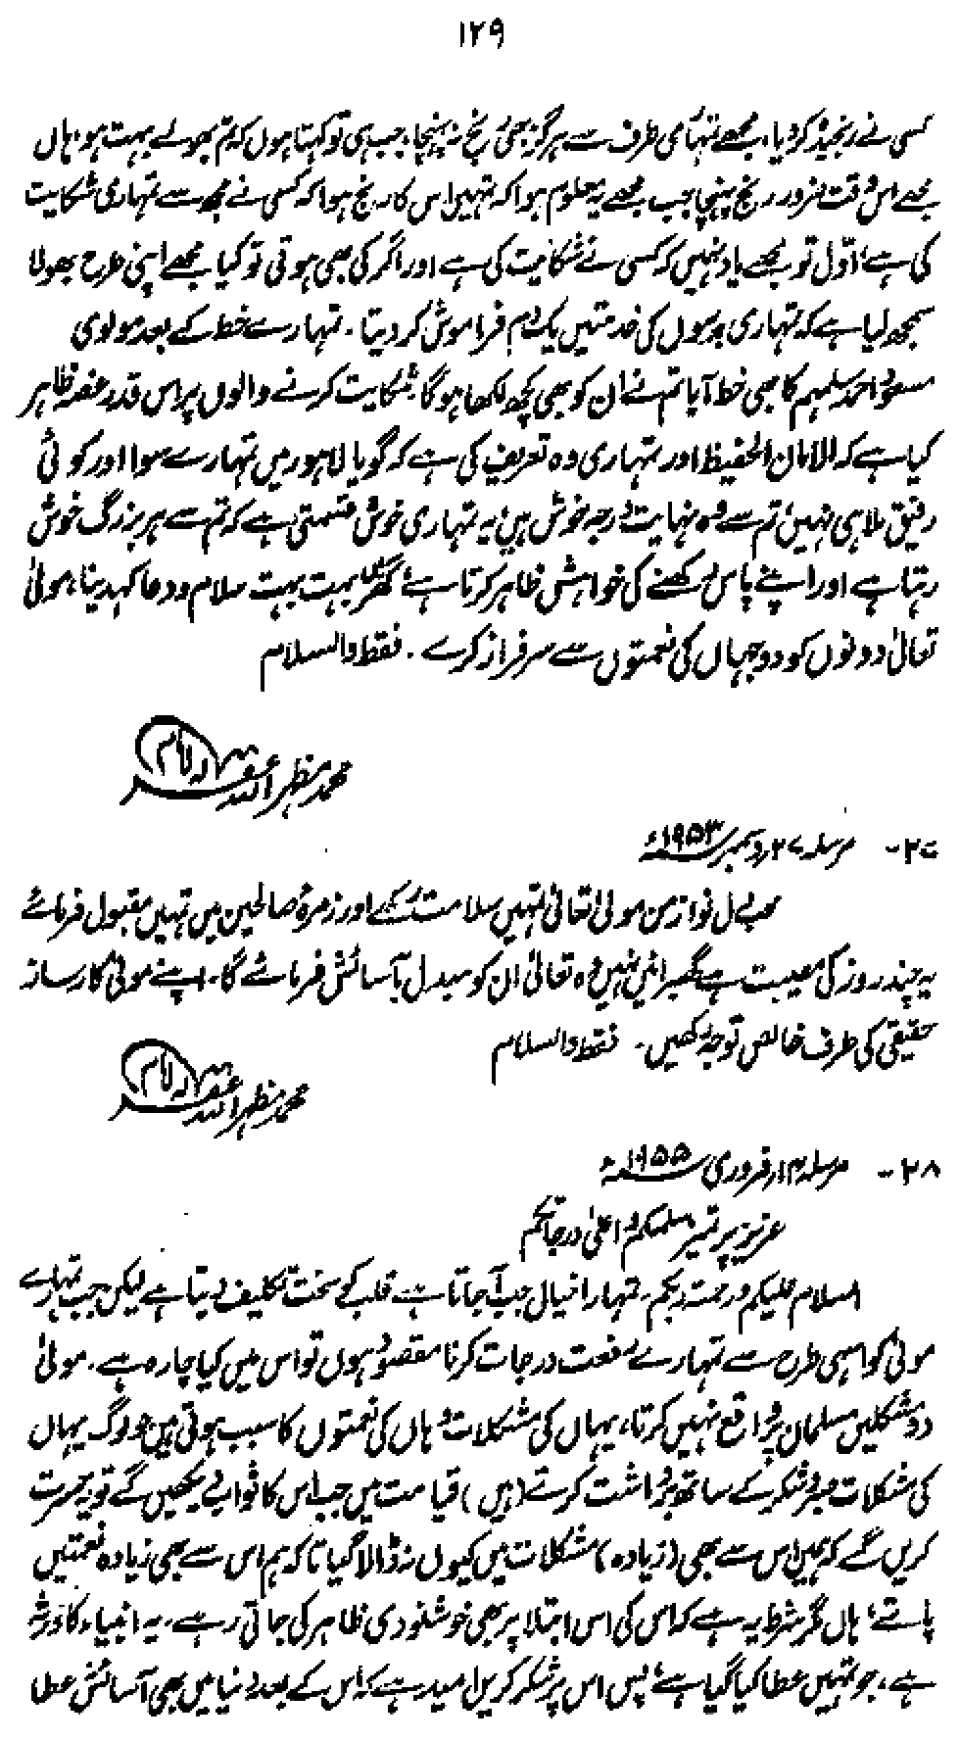 ۱۲۹
کسی نے رنجیدہ کر دیا، مجھے تمہاری طرف سے ہرگز بھی رنج نہ پہنچا، جب ہی تو کہتا ہوں کہ تم بھولے بہت ہو، ہاں
مجھے اس وقت ضرور رنج پہنچا جب مجھے یہ معلوم ہوا کہ تمہیں اس کا رنج ہوا کہ کسی نے مجھ سے تمہاری شکایت
کی ہے، اوّل تو مجھے یاد نہیں کہ کسی نے شکایت کی ہے اور اگر کی بھی ہوتی تو کیا مجھے اپنی طرح بھولا
سمجھ لیا ہے کہ تمہاری برسوں کی خدمتیں یک دم فراموش کر دیتا۔ تمہارے خط کے بعد مولوی
مسعود احمد سلمہم کا بھی خط آیا تم نے ان کو بھی کچھ لکھا ہوگا، شکایت کرنے والوں پر اس قدر غصہ ظاہر
کیا ہے کہ الامان الحفیظ اور تمہاری وہ تعریف کی ہے کہ گویا لاہور میں تمہارے سوا اور کوئی
رفیق ملا ہی نہیں، تم سے وہ نہایت درجہ خوش ہیں، یہ تمہاری خوش قسمتی ہے کہ تم سے ہر بزرگ خوش
رہتا ہے اور اپنے پاس رکھنے کی خواہش ظاہر کرتا ہے، گھر میں بہت بہت سلام و دعا کہہ دینا، مولیٰ
تعالیٰ دونوں کو دوجہاں کی نعمتوں سے سرفراز کرے۔ فقط والسلام
محمد مظہر اللہ غفرلہ امام
۲۷۔ مرسلہ ۲۷؍دسمبر ۱۹۵۳ء
محب دل نواز من مولیٰ تعالیٰ تمہیں سلامت رکھے اور زمرۂ صالحین میں تمہیں مقبول فرمائے
یہ چند روز کی مصیبت ہے گھبرائیں نہیں وہ تعالیٰ ان کو مبدل بآسائش فرمائے گا۔ اپنے مولیٰ کارساز
حقیقی کی طرف خالص توجہ رکھیں۔ فقط والسلام
محمد مظہر اللہ غفرلہ امام
۲۸۔ مرسلہ ۱۴؍فروری ۱۹۵۵ء
عزیز پر تمیز سلمکم و اعلیٰ درجاتکم
السلام علیکم ورحمۃ ربکم۔ تمہارا خیال جب آجاتا ہے قلب کو سخت تکلیف دیتا ہے لیکن جب تمہارے
مولیٰ کو اسی طرح سے تمہارے رفعت درجات کرنا مقصود ہوں تو اس میں کیا چارہ ہے۔ مولیٰ
دو مشکلیں مسلمان پر واقع نہیں کرتا، یہاں کی مشکلات وہاں کی نعمتوں کا سبب ہوتی ہیں جو لوگ یہاں
کی مشکلات صبر و شکر کے ساتھ برداشت کرتے (ہیں) قیامت میں جب اس کا ثواب دیکھیں گے تو یہ حسرت
کریں گے کہ ہمیں اس سے بھی (زیادہ) مشکلات میں کیوں نہ ڈالا گیا تاکہ ہم اس سے بھی زیادہ نعمتیں
پاتے، ہاں مگر شرط یہ ہے کہ اس کی اس ابتلا پر بھی خوشنودی ظاہر کی جاتی رہے، یہ انبیاء کا ورثہ
ہے، جو تمہیں عطا کیا گیا ہے، پس اس پر شکر کریں امید ہے کہ اس کے بعد دنیا میں بھی آسائش عطا